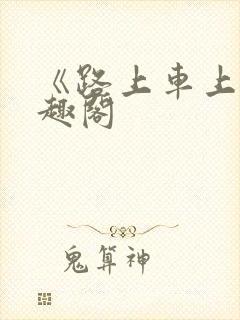 《路上車上
趣閣
鬼算神